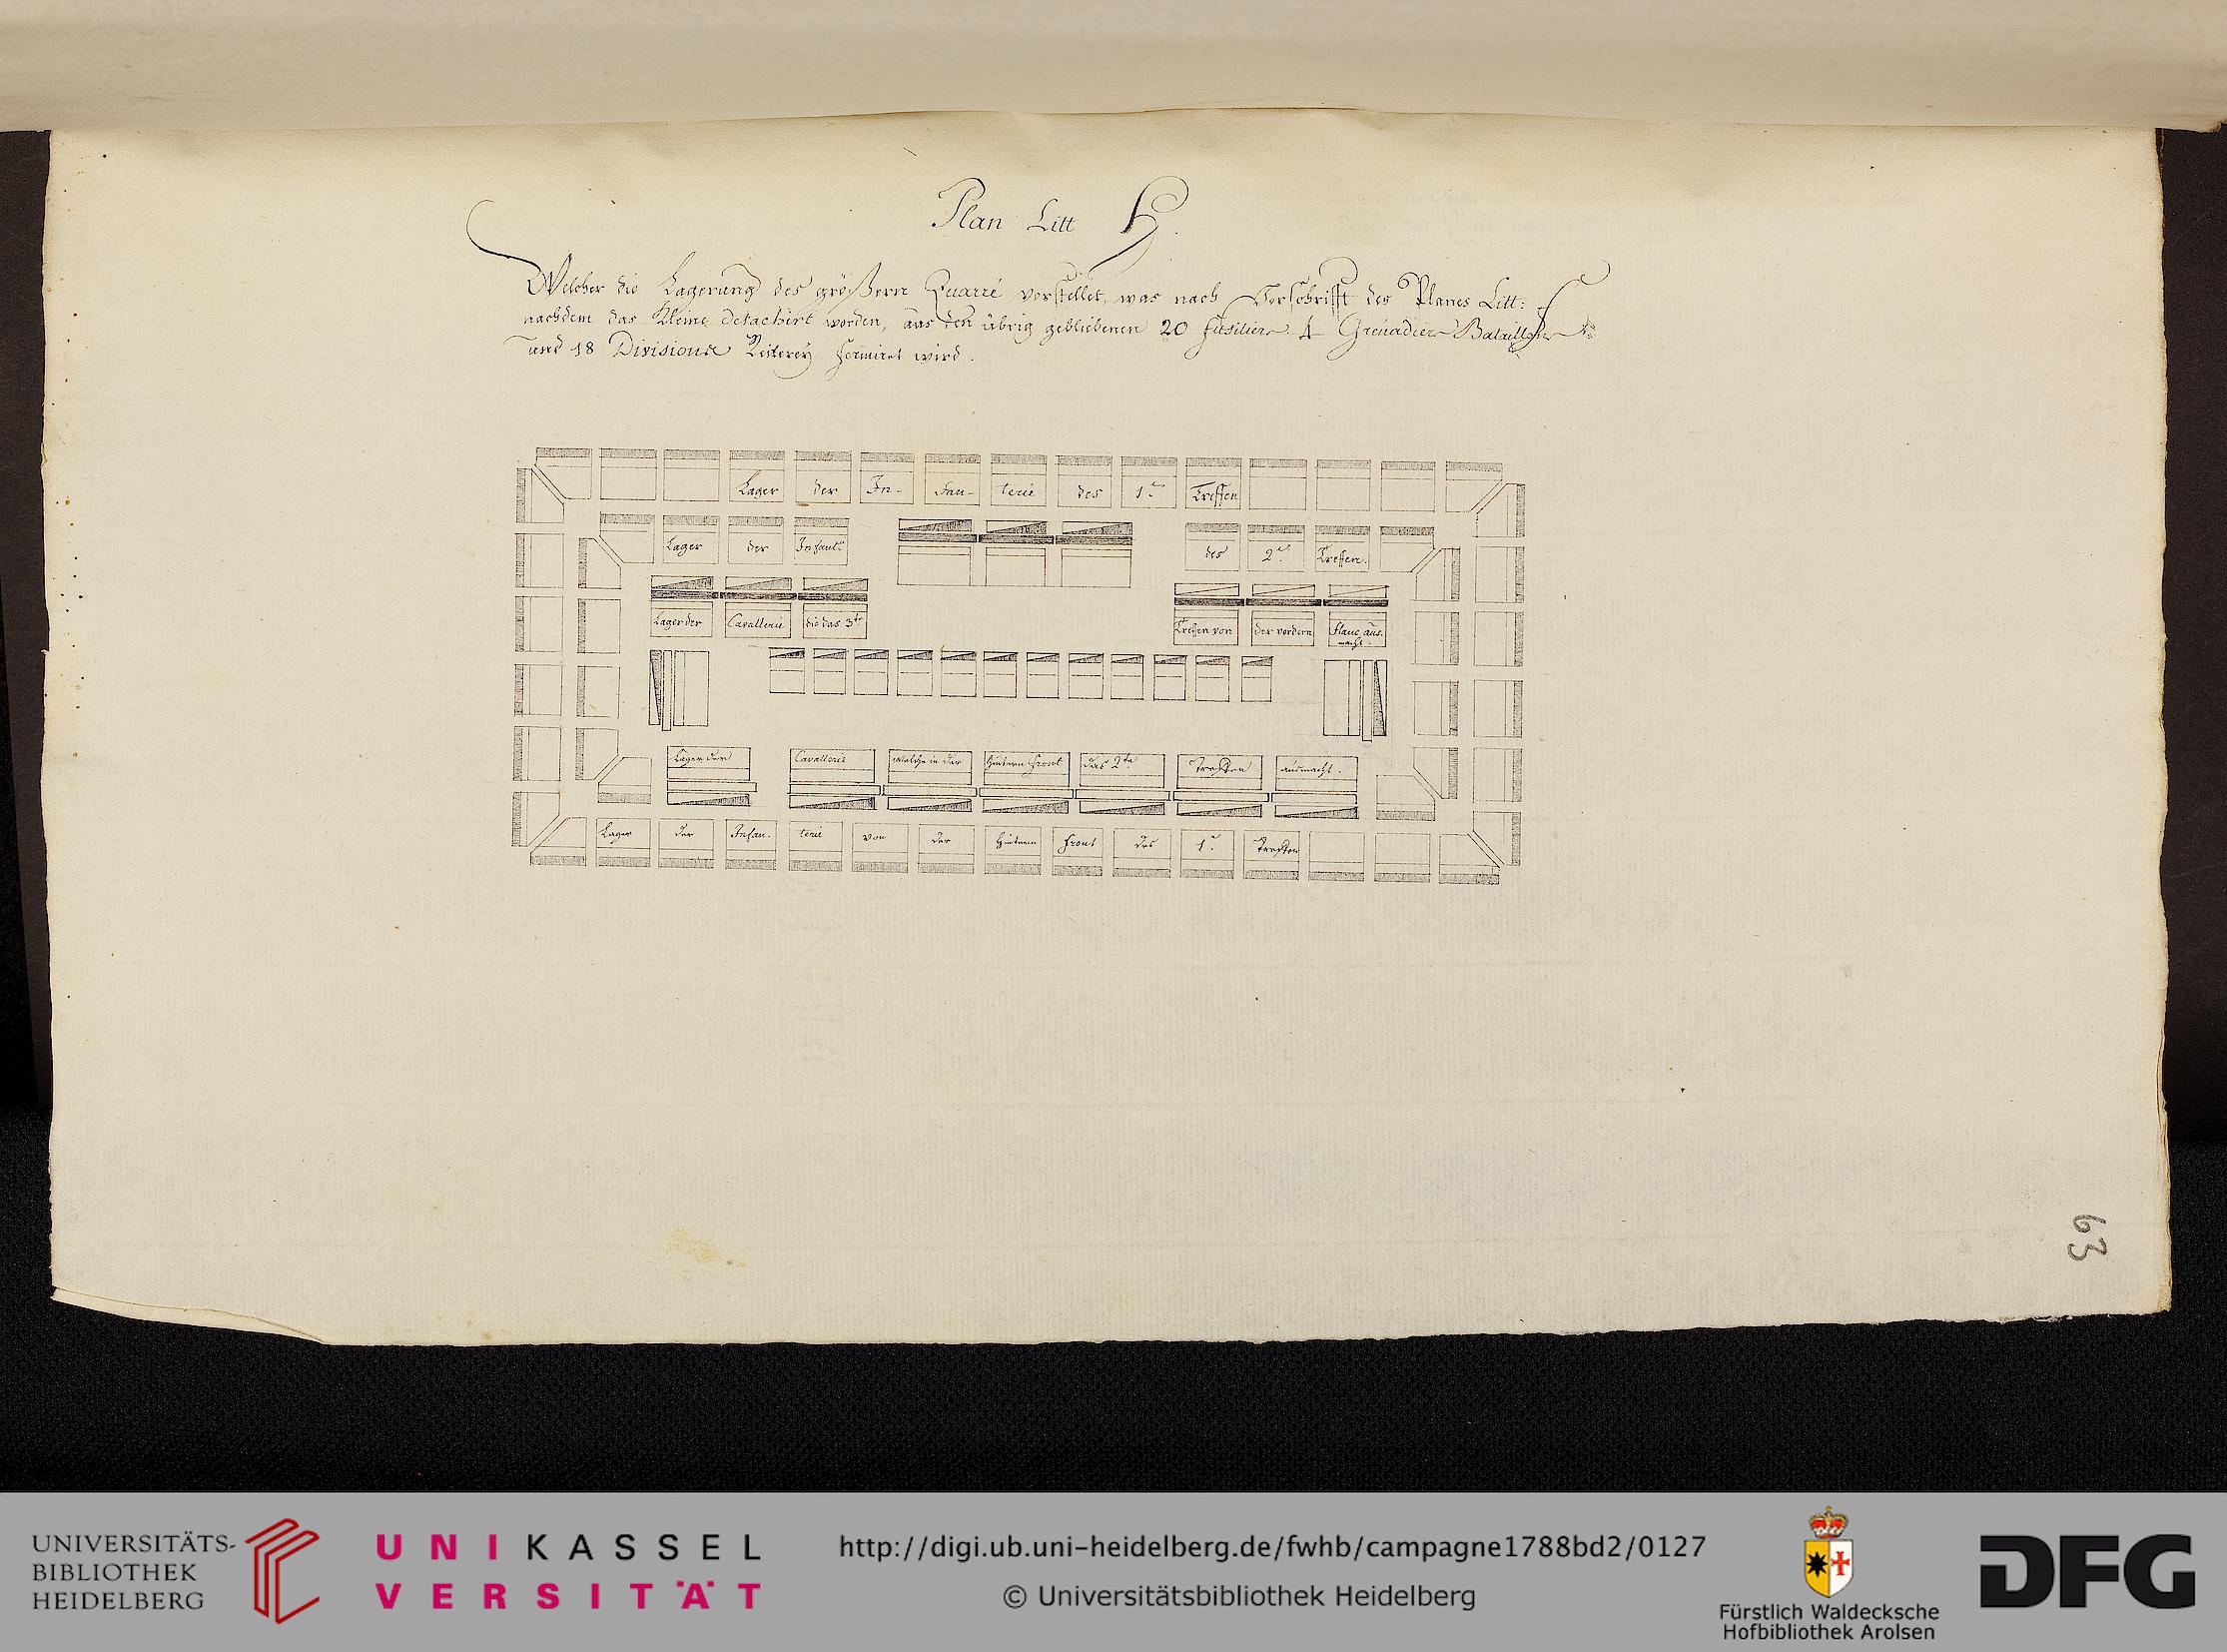 Plan Litt H.
Welcher die Lagerung des größern Quarré vorstellet, was nach Vorschrifft des Planes Litt:
nachdem das Kleine detachirt worden, aus den übrig gebliebenen 20 Fusilier 4 Grenadier Bataillons
und 18 Divisions Reiterey formiret wird.
Lager der In- fan- terie des 1ten Treffen
Lager der Infant: des 2ten Treffen.
Lager der Cavallerie die das 3te Treffen von der vordern Flanc aus-
macht.
Lager der Cavallerie welche in der hintern Front das 2te Treffen ausmacht.
Lager der Infan- terie von der hintern Front des 1ten Treffen
63
UNIVERSITÄTS-
BIBLIOTHEK
HEIDELBERG
UNIKASSEL
VERSITÄT
http://digi.ub.uni-heidelberg.de/fwhb/campagne1788bd2/0127
© Universitätsbibliothek Heidelberg
Fürstlich Waldecksche
Hofbibliothek Arolsen
DFG